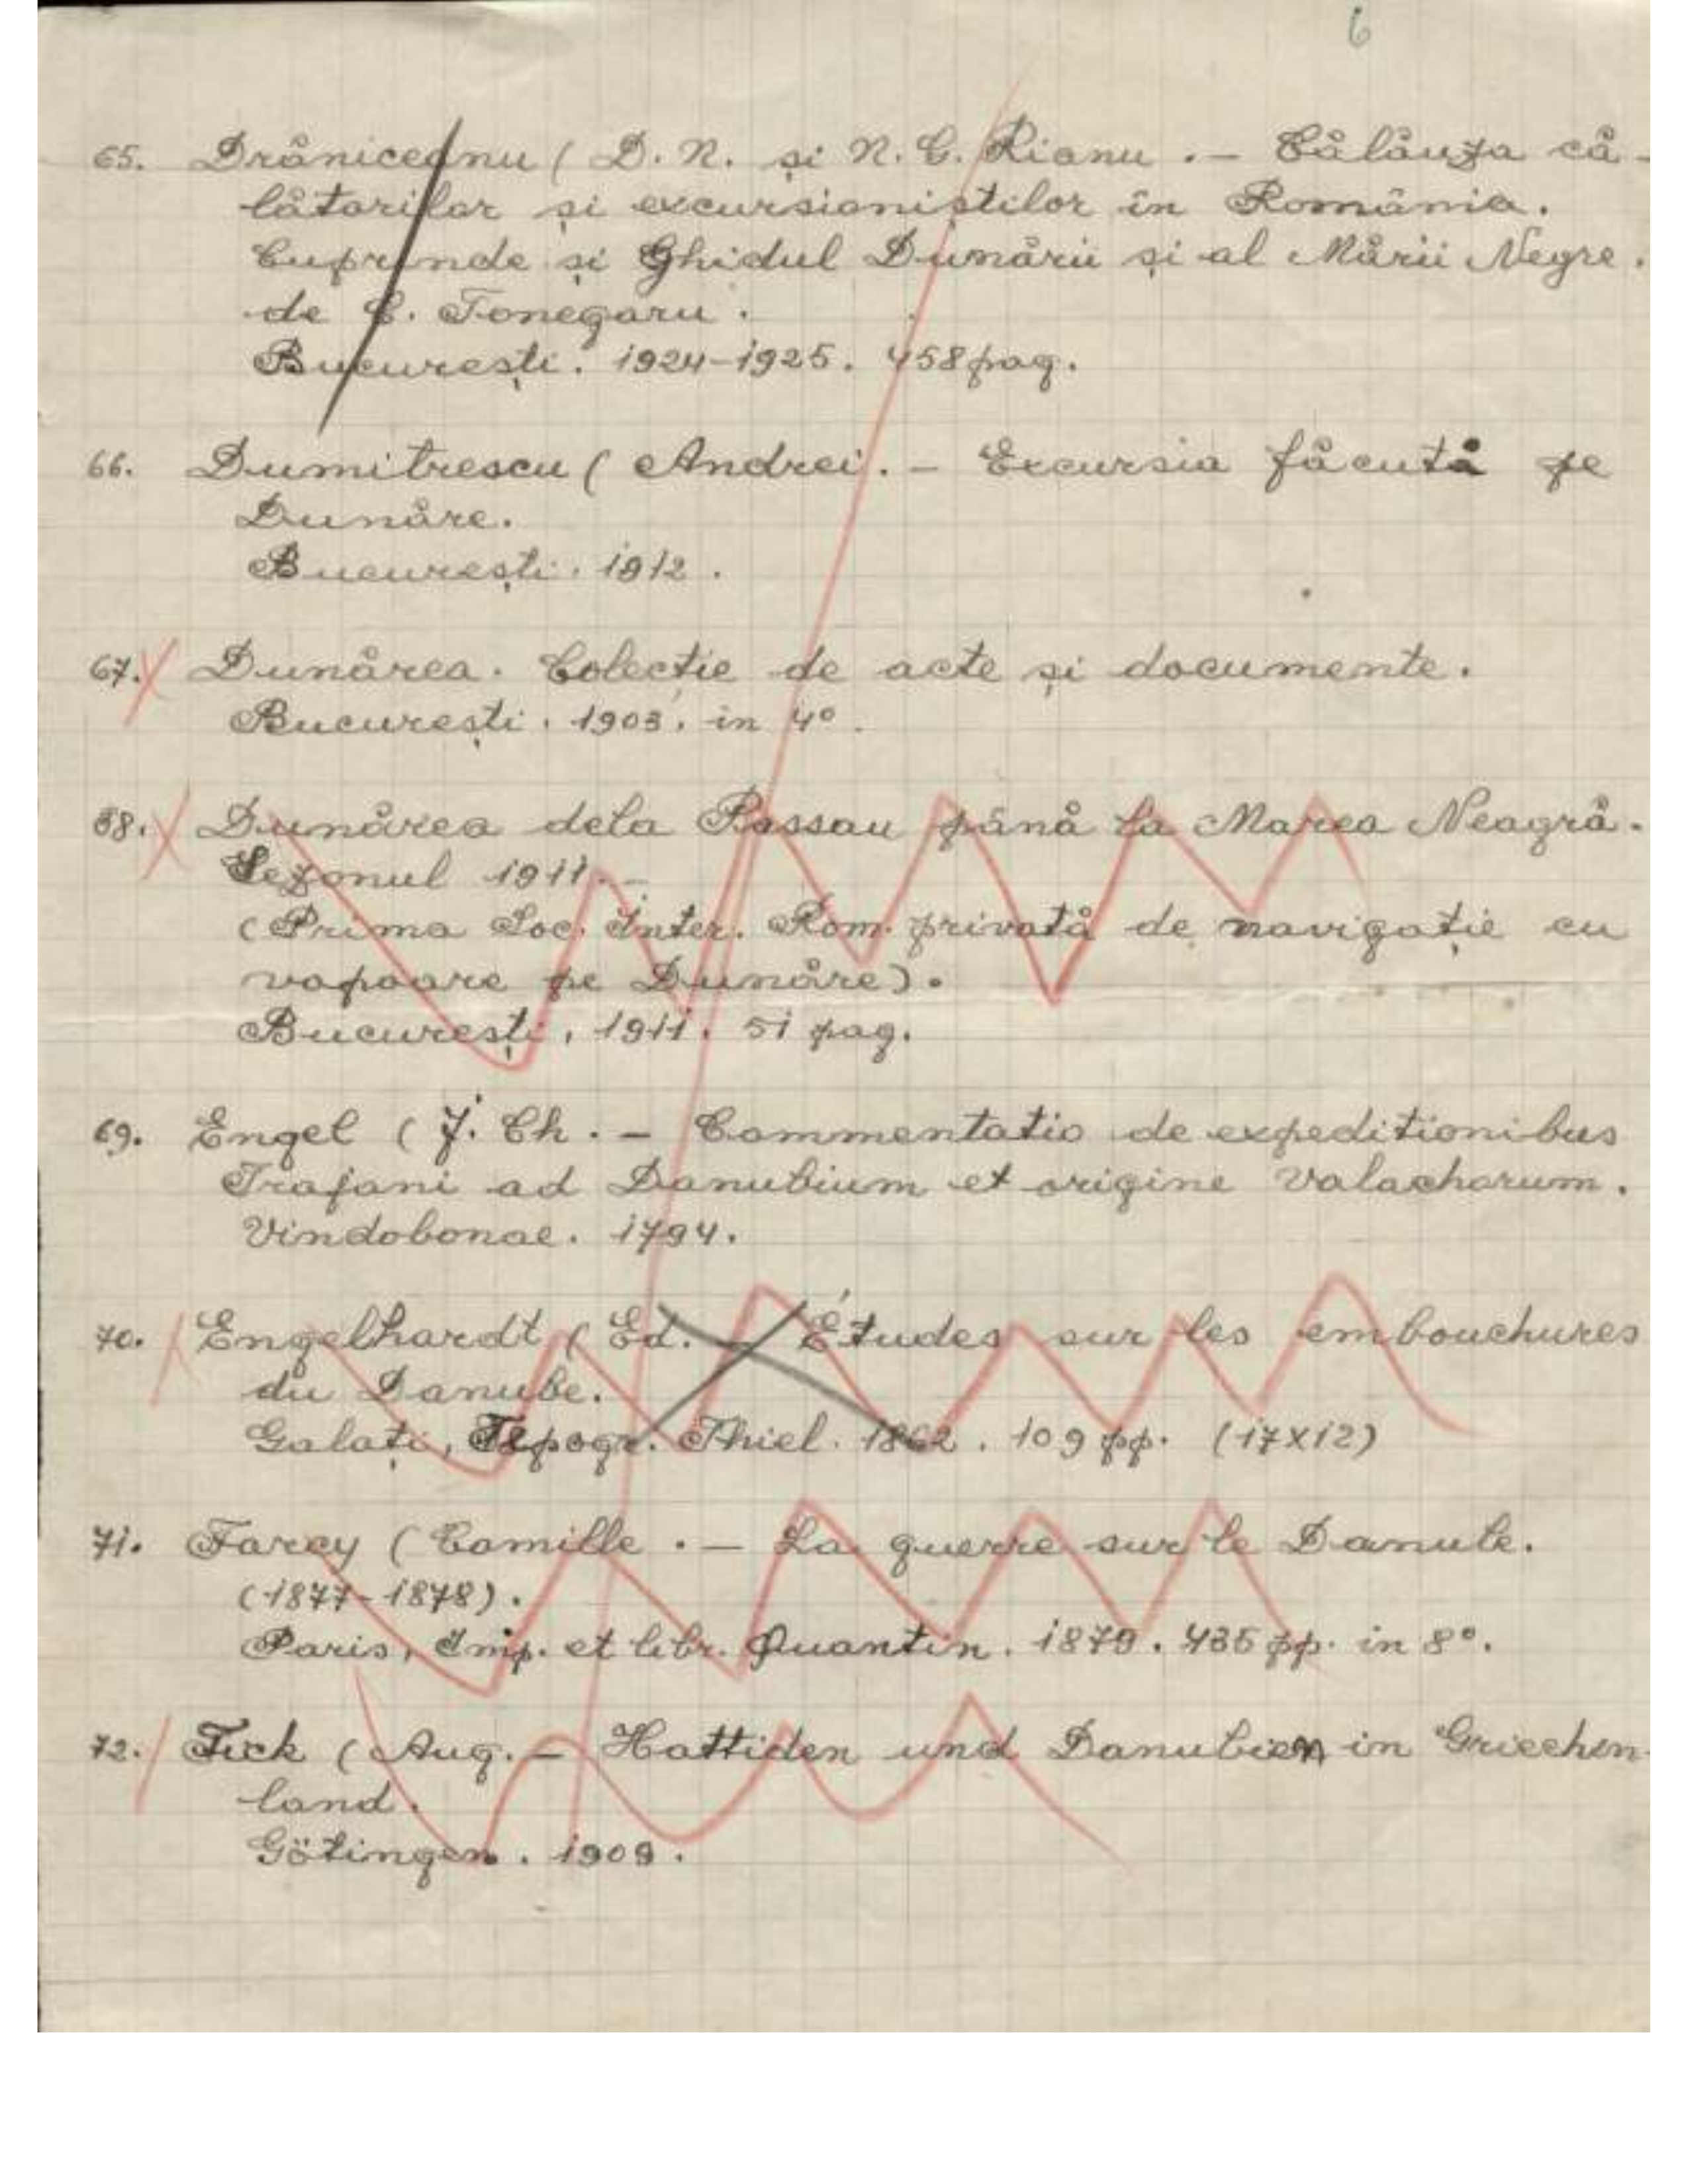 6
65. Drăniceanu ( D. N. și N. C. Rianu . — Călăuza că-
lătorilor și excursioniștilor în România.
Cuprinde și Ghidul Dunării și al Mării Negre.
de C. Tonegaru.
București. 1924-1925. 458 pag.
66. Dumitrescu ( Andrei. — Excursia făcută pe
Dunăre.
București. 1912.
67. Dunărea. Colecție de acte și documente.
București. 1903. in 4°.
68. Dunărea dela Passau până la Marea Neagră.
Sezonul 1911. —
(Prima Soc. Inter. Rom. privată de navigație cu
vapoare pe Dunăre).
București, 1911. 51 pag.
69. Engel ( J. Ch. — Commentatio de expeditionibus
Trajani ad Danubium et origine Valachorum.
Vindobonae. 1794.
70. Engelhardt ( Ed. — Études sur les embouchures
du Danube.
Galați, Tipogr. Thiel. 1862. 109 pp. (17X12)
71. Farcy ( Camille . — La guerre sur le Danube.
(1877-1878).
Paris, Imp. et libr. Quantin. 1879. 435 pp. in 8°.
72. Fick ( Aug. — Hattiden und Danubier in Griechen-
land.
Götingen. 1909.